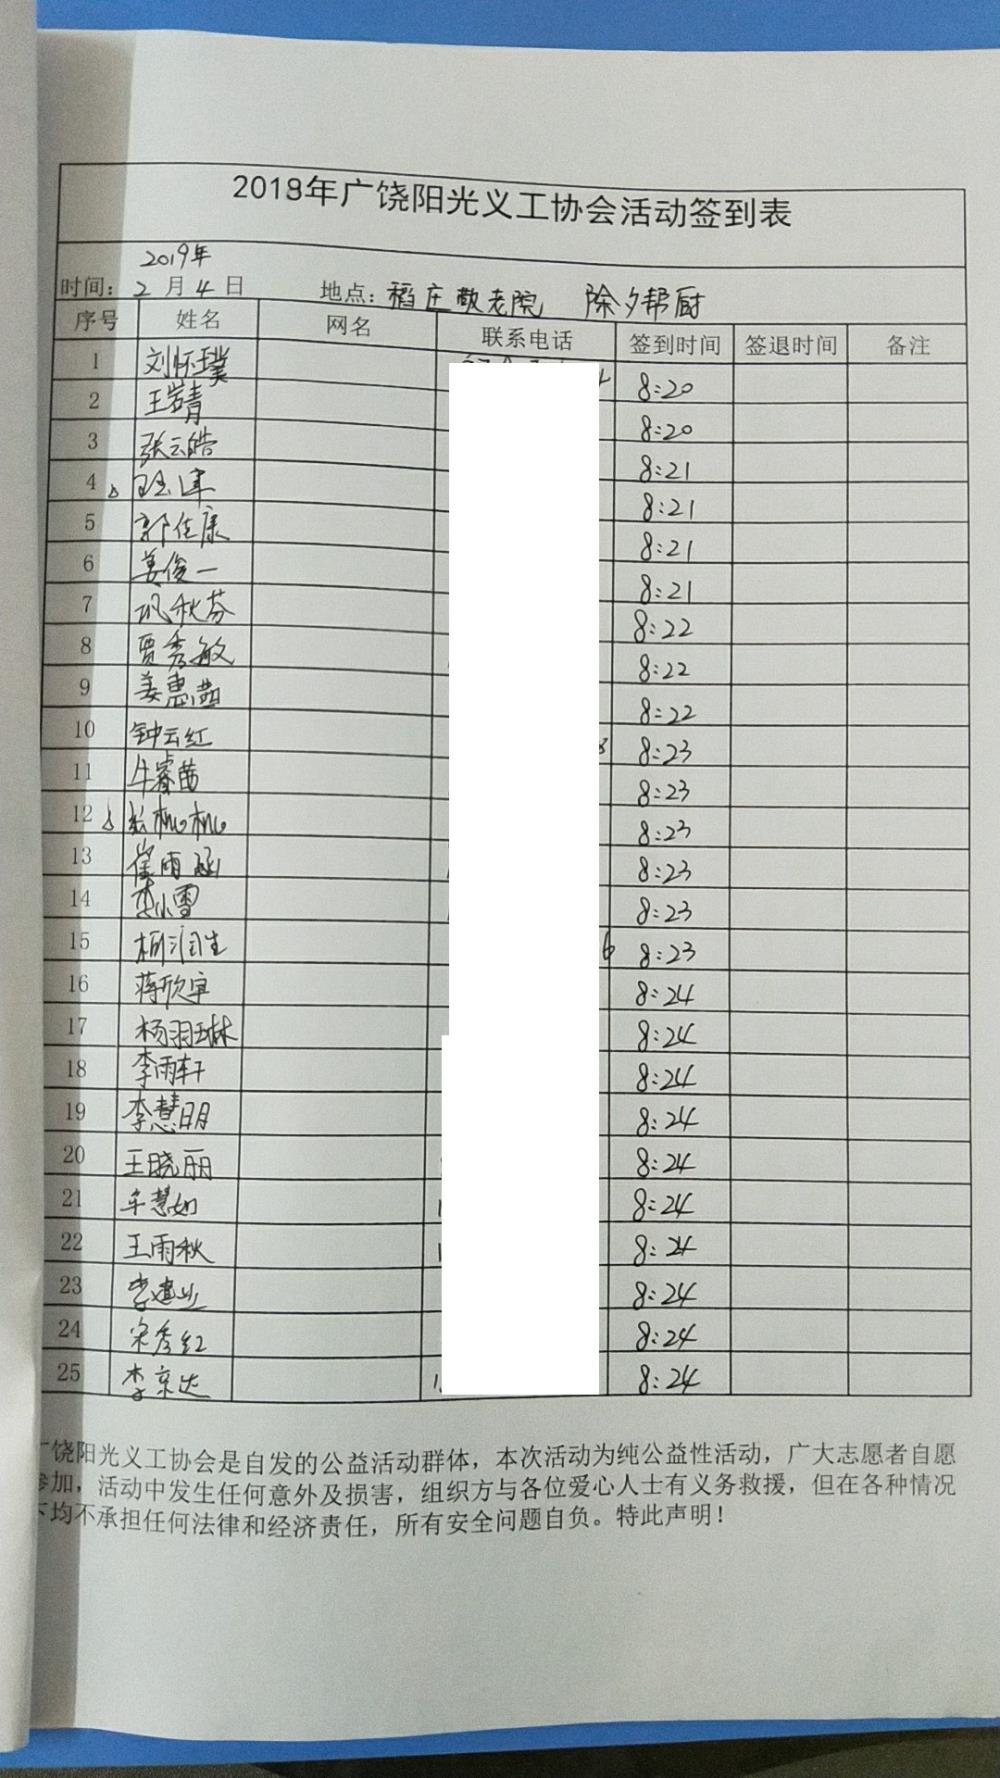 2018年广饶阳光义工协会活动签到表
2019年
时间：2月4日 地点：稻庄敬老院 除夕帮厨
序号 姓名 网名 联系电话 签到时间 签退时间 备注
1 刘怀璞 8:20
2 王岩青 8:20
3 张云皓 8:21
4 8:21
5 郭佳康 8:21
6 姜俊一 8:21
7 巩秋芬 8:22
8 贾秀敏 8:22
9 姜惠茜 8:22
10 钟云红 8:23
11 牛睿茜 8:23
12 8:23
13 崔雨涵 8:23
14 李小雪 8:23
15 8:23
16 蒋欣宇 8:24
17 杨羽琳 8:24
18 李雨轩 8:24
19 李慧明 8:24
20 王晓丽 8:24
21 牟慧如 8:24
22 王雨秋 8:24
23 李建业 8:24
24 宋秀红 8:24
25 李京达 8:24
广饶阳光义工协会是自发的公益活动群体，本次活动为纯公益性活动，广大志愿者自愿
参加，活动中发生任何意外及损害，组织方与各位爱心人士有义务救援，但在各种情况
下均不承担任何法律和经济责任，所有安全问题自负。特此声明！